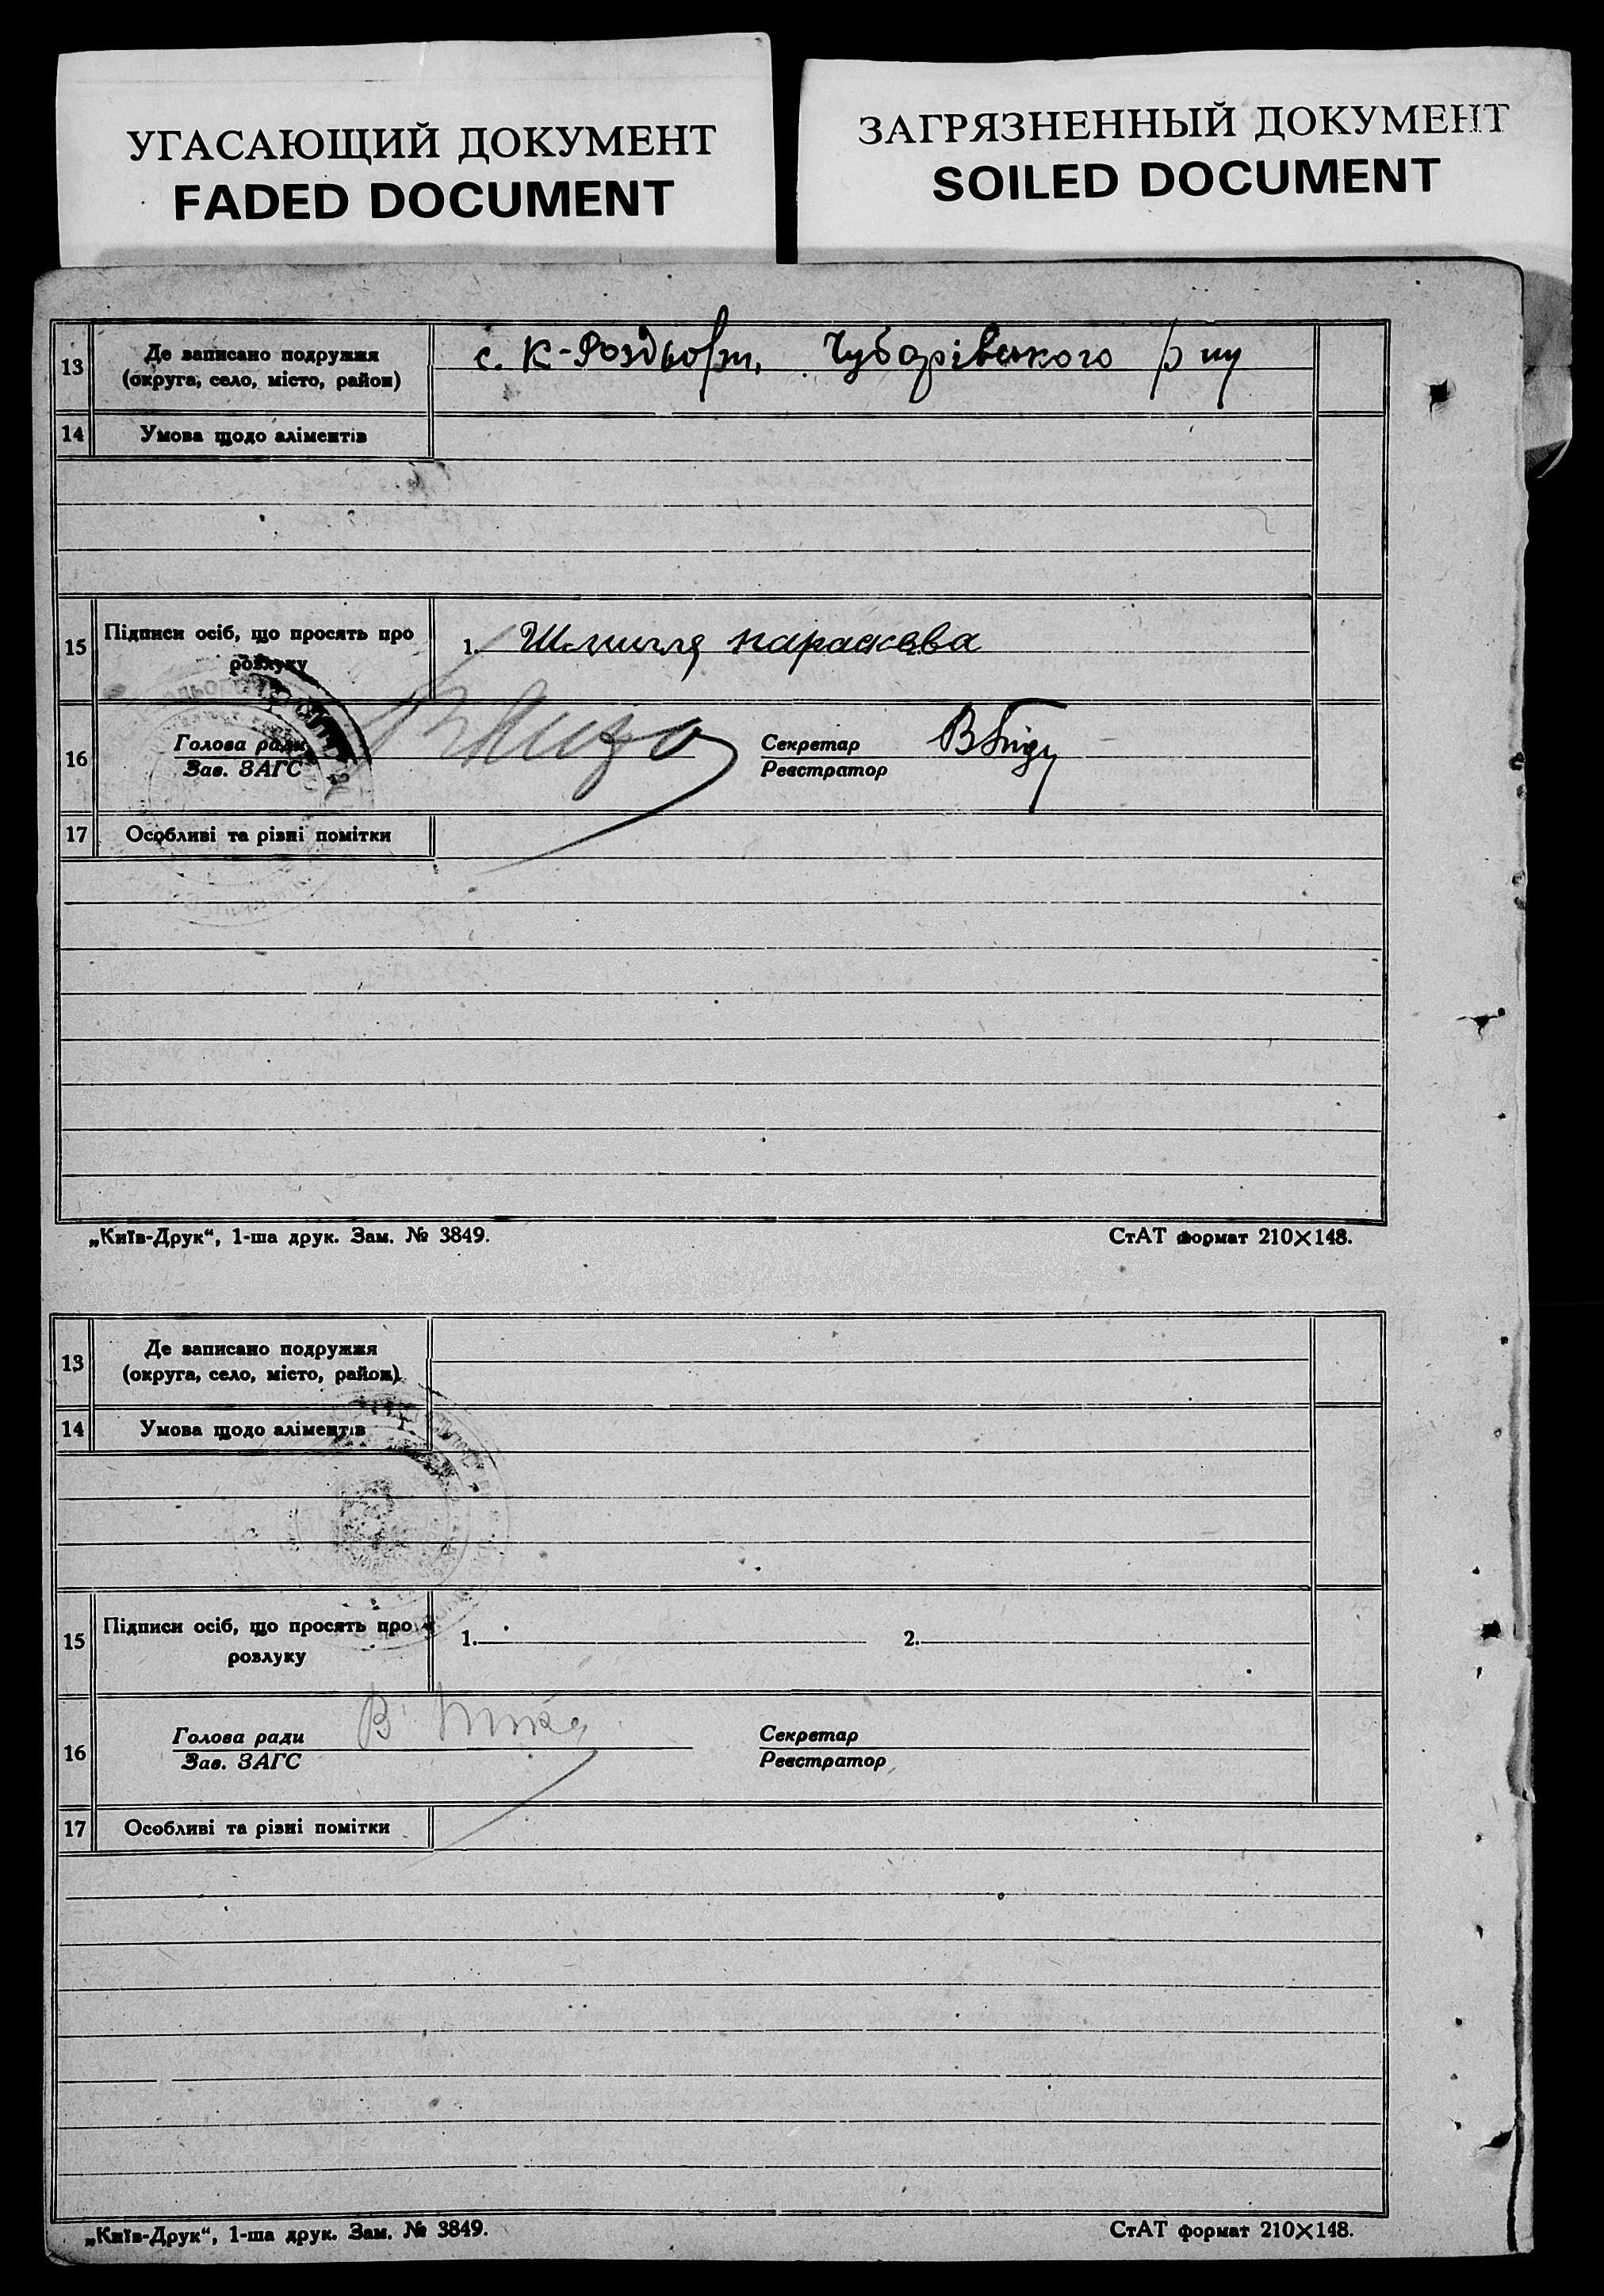 УГАСАЮЩИЙ ДОКУМЕНТ
FADED DOCUMENT
ЗАГРЯЗНЕННЫЙ ДОКУМЕНТ
SOILED DOCUMENT
13 Де записано подружжя
(округа, село, місто, район)
с. К-Роздьори, Чубарівського р ну
14 Умова щодо аліментів
15 Підписи осіб, що просять про
розлуку
1. Шмигля параскева
16 Голова ради
Зав. ЗАГС
Секретар
Реєстратор
17 Особливі та різні помітки
„Київ-Друк“, 1-ша друк. Зам. № 3849.
СтАТ формат 210×148.
13 Де записано подружжя
(округа, село, місто, район)
14 Умова щодо аліментів
15 Підписи осіб, що просять про
розлуку
1. 2.
16 Голова ради
Зав. ЗАГС
Секретар
Реєстратор
17 Особливі та різні помітки
„Київ-Друк“, 1-ша друк. Зам. № 3849.
СтАТ формат 210×148.